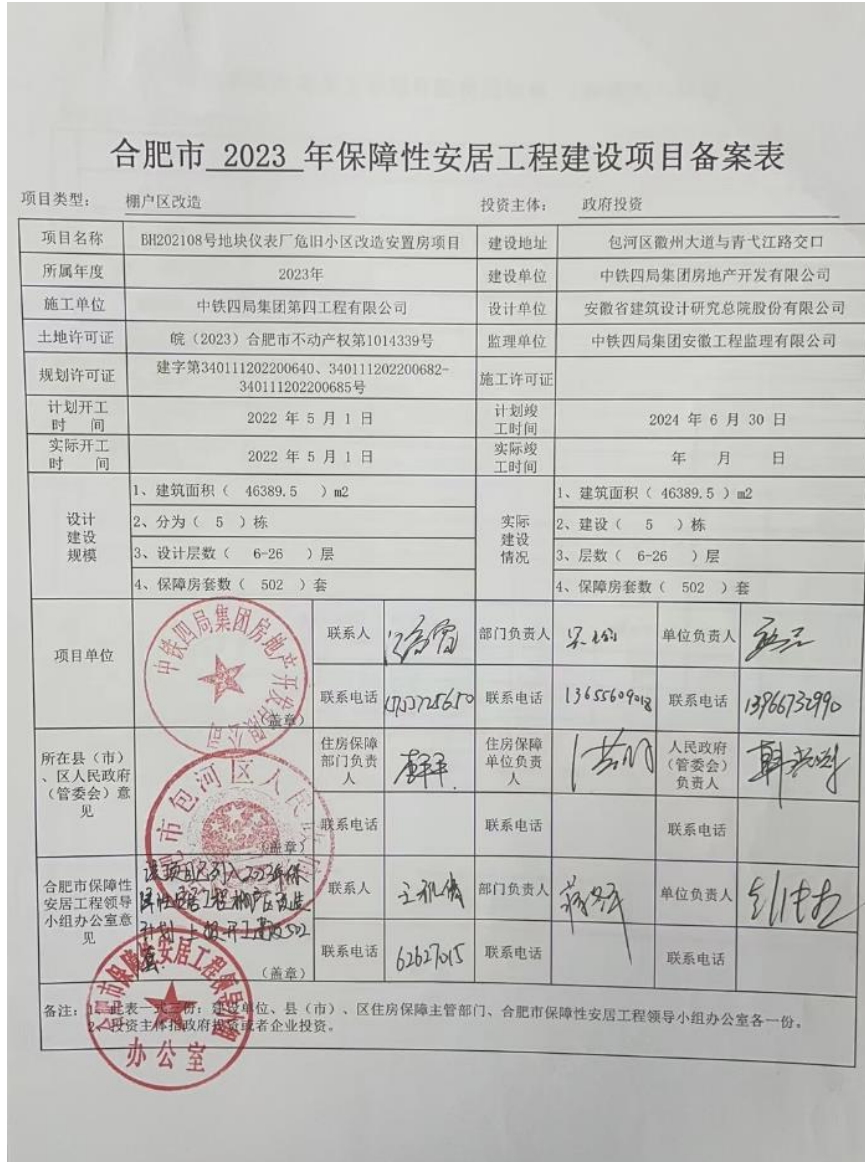 合肥市 2023 年保障性安居工程建设项目备案表
项目类型： 棚户区改造 投资主体： 政府投资
项目名称 BH202108号地块仪表厂危旧小区改造安置房项目 建设地址 包河区徽州大道与青弋江路交口
所属年度 2023年 建设单位 中铁四局集团房地产开发有限公司
施工单位 中铁四局集团第四工程有限公司 设计单位 安徽省建筑设计研究总院股份有限公司
土地许可证 皖（2023）合肥市不动产权第1014339号 监理单位 中铁四局集团安徽工程监理有限公司
规划许可证 建字第340111202200640、340111202200682-
340111202200685号 施工许可证
计划开工
时 间 2022 年 5 月 1 日 计划竣
工时间 2024 年 6 月 30 日
实际开工
时 间 2022 年 5 月 1 日 实际竣
工时间 年 月 日
设计
建设
规模
1、建筑面积（ 46389.5 ）m2
2、分为（ 5 ）栋
3、设计层数（ 6-26 ）层
4、保障房套数（ 502 ）套
实际
建设
情况
1、建筑面积（ 46389.5 ）m2
2、建设（ 5 ）栋
3、层数（ 6-26 ）层
4、保障房套数（ 502 ）套
项目单位
中铁四局集团房地产开发有限公司
（盖章）
联系人 部门负责人 单位负责人
联系电话 联系电话 13655609018 联系电话 13966732990
所在县（市）
、区人民政府
（管委会）意
见
市包河区人民政府
（盖章）
住房保障
部门负责
人
住房保障
单位负责
人
人民政府
（管委会）
负责人
联系电话 联系电话 联系电话
合肥市保障性
安居工程领导
小组办公室意
见
该项目已列入2023年保
障性安居工程棚户区改造
计划，上报开工套数502
套。
（盖章）
联系人 部门负责人 单位负责人
联系电话 62627015 联系电话 联系电话
合肥市保障性安居工程领导小组
办公室
备注：1、此表一式三份：建设单位、县（市）、区住房保障主管部门、合肥市保障性安居工程领导小组办公室各一份。
2、投资主体指政府投资或者企业投资。